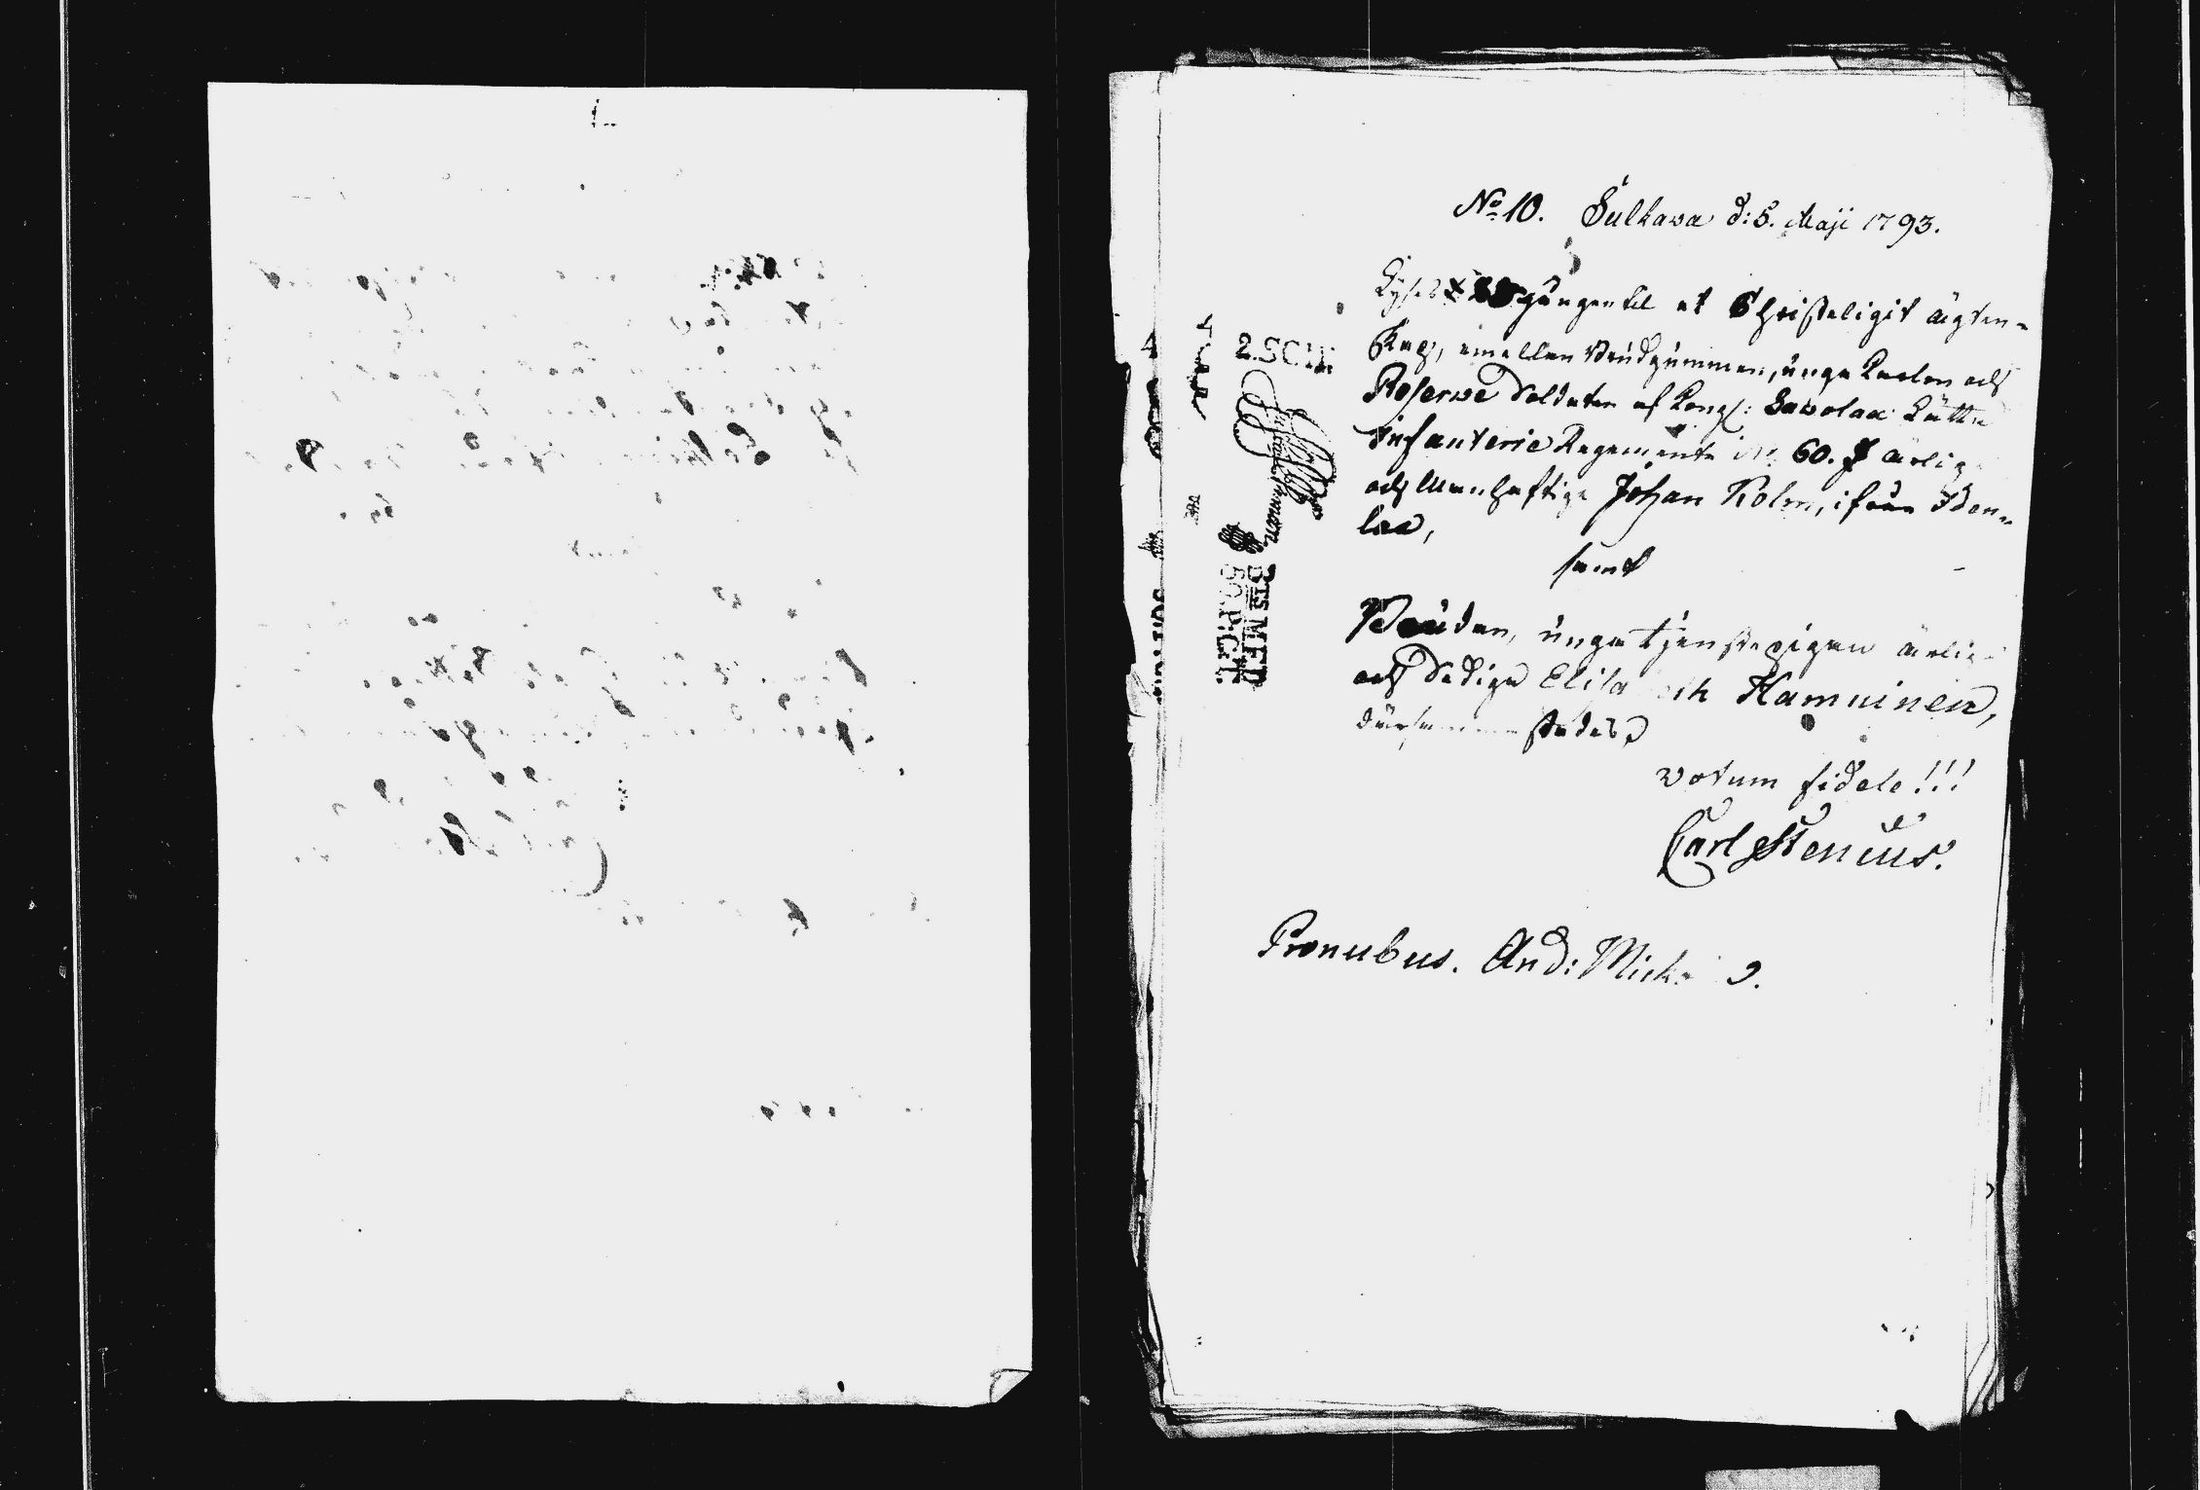 No 10. Sulkava d: 5. Maji 1793.
Lyses gången til et Christeligit ägten=
skap, emellan Brudgummen, unga Karlen och
Reserve Soldaten af Kongl: Savolax Lätta
Infanterie Regemente No 60. ärlig
och Manhaftige Johan Kolm, ifrån Iden=
lax,
samt
Bruden, unga tjenstepigan ärlig
och dediga Elisabeth Hamninen,
därsammastädes,
votum fidele!!!
Carl Stenius.
Pronubus. And: Mick
2. SCH